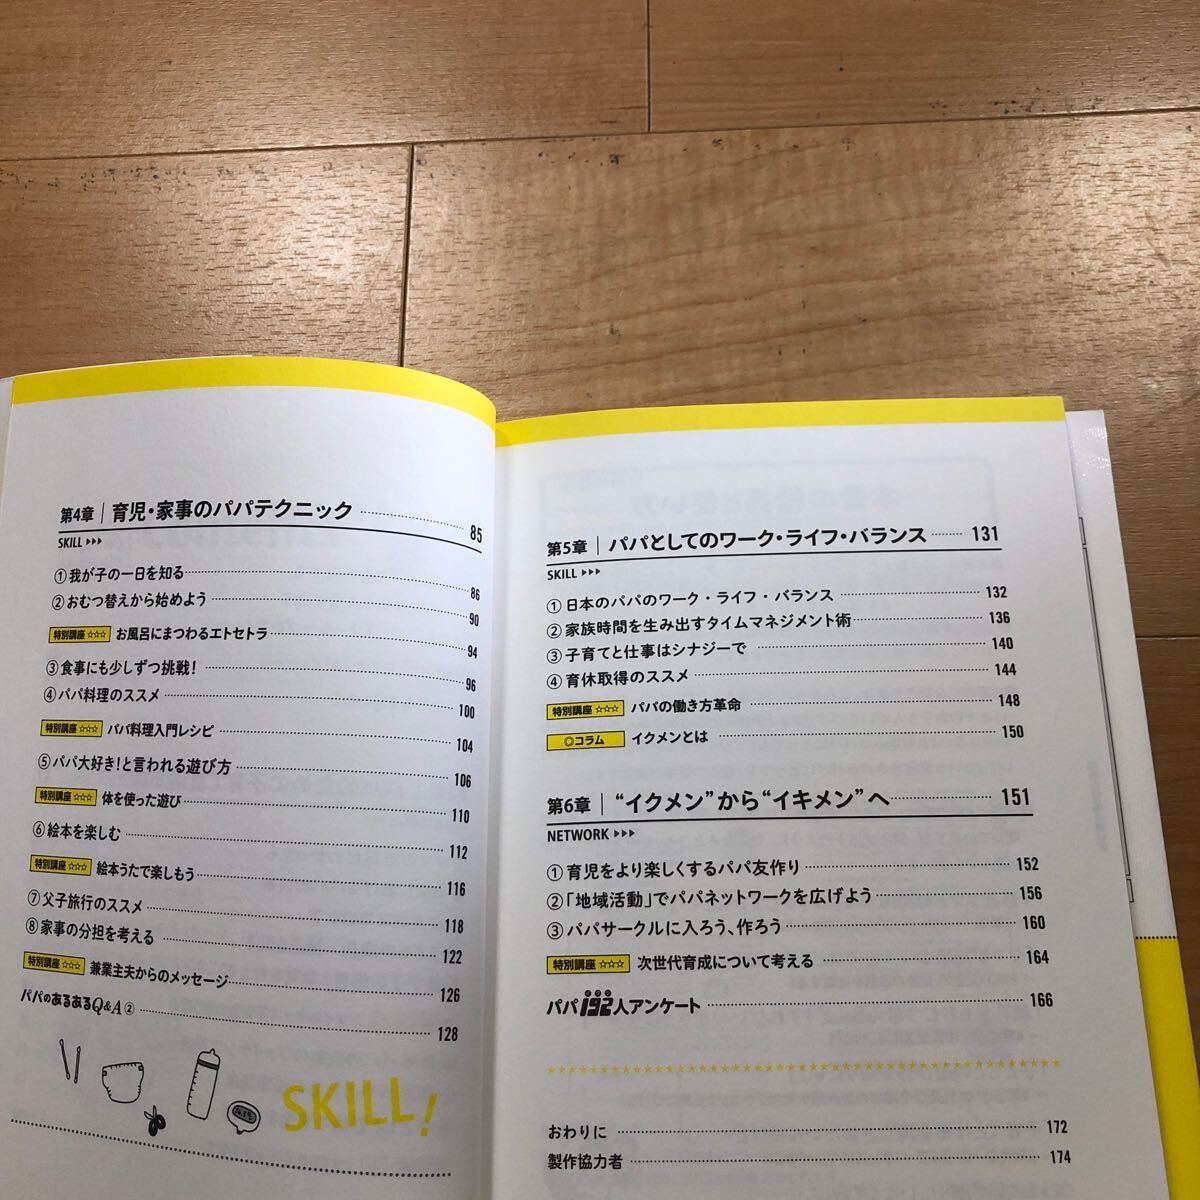 第4章 | 育児・家事のパパテクニック 85
SKILL
①我が子の一日を知る 86
②おむつ替えから始めよう 90
特別講座☆☆☆ お風呂にまつわるエトセトラ 94
③食事にも少しずつ挑戦! 96
④パパ料理のススメ 100
特別講座☆☆☆ パパ料理入門レシピ 104
⑤パパ大好き!と言われる遊び方 106
特別講座☆☆☆ 体を使った遊び 110
⑥絵本を楽しむ 112
特別講座☆☆☆ 絵本うたで楽しもう 116
⑦父子旅行のススメ 118
⑧家事の分担を考える 122
特別講座☆☆☆ 兼業主夫からのメッセージ 126
パパのあるあるQ&A② 128
SKILL!
第5章 | パパとしてのワーク・ライフ・バランス 131
SKILL
①日本のパパのワーク・ライフ・バランス 132
②家族時間を生み出すタイムマネジメント術 136
③子育てと仕事はシナジーで 140
④育休取得のススメ 144
特別講座☆☆☆ パパの働き方革命 148
◎コラム イクメンとは 150
第6章 | “イクメン”から“イキメン”へ 151
NETWORK
①育児をより楽しくするパパ友作り 152
②「地域活動」でパパネットワークを広げよう 156
③パパサークルに入ろう、作ろう 160
特別講座☆☆☆ 次世代育成について考える 164
パパ192人アンケート 166
おわりに 172
製作協力者 174